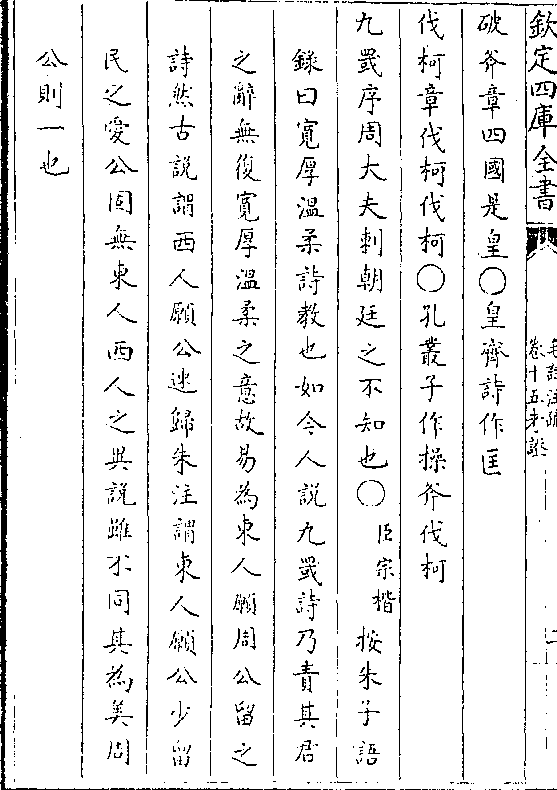 欽定四庫全書
毛詩注疏
卷十五考證
二
破斧章四國是皇○皇齊詩作匡
伐柯章伐柯伐柯○孔叢子作操斧伐柯
九罭序周大夫刺朝廷之不知也○臣宗楷按朱子語
錄曰寬厚溫柔詩教也如今人説九罭詩乃責其君
之辭無復寬厚溫柔之意故易為東人願周公留之
詩然古説謂西人願公速歸朱注謂東人願公少留
民之愛公固無東人西人之異説雖不同其為美周
公則一也